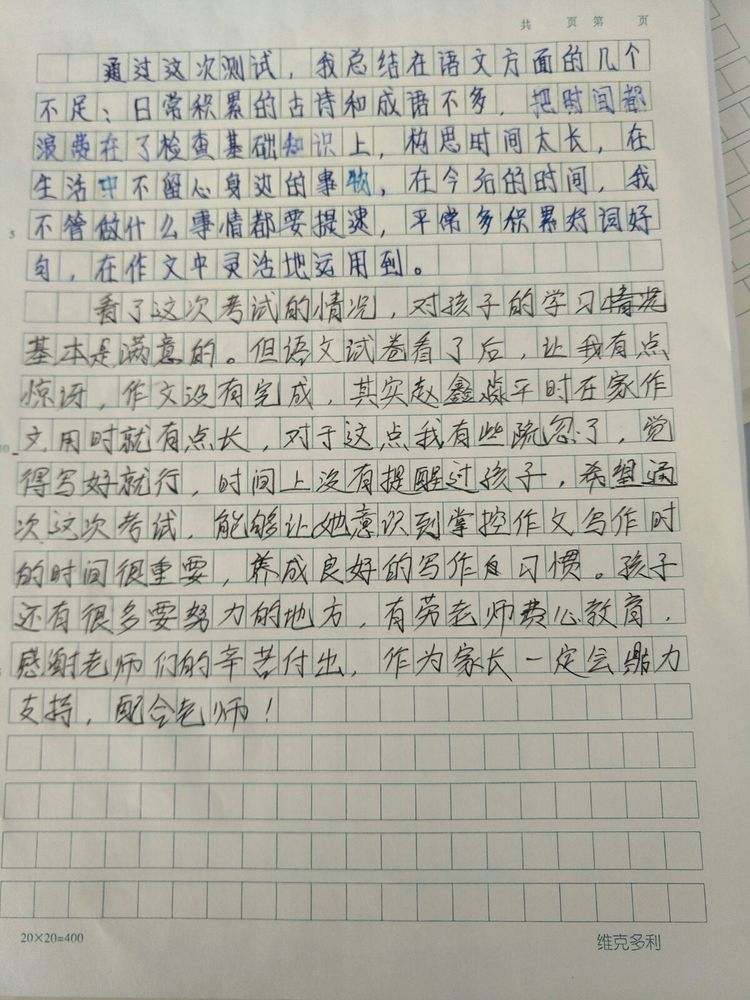 共 页 第 页
通过这次测试，我总结在语文方面的几个
不足：日常积累的古诗和成语不多，把时间都
浪费在了检查基础知识上，构思时间太长，在
生活中不留心身边的事物，在今后的时间，我
5
不管做什么事情都要提速，平常多积累好词好
句，在作文中灵活地运用到。
看了这次考试的情况，对孩子的学习情况
基本是满意的。但语文试卷看了后，让我有点
惊讶，作文没有完成，其实赵鑫淼平时在家作
10
文用时就有点长，对于这点我有些疏忽了，觉
得写好就行，时间上没有提醒过孩子，希望通
次这次考试，能够让她意识到掌控作文写作时
的时间很重要，养成良好的写作习惯。孩子
还有很多要努力的地方，有劳老师费心教育，
感谢老师们的辛苦付出，作为家长一定会鼎力
支持，配合老师！
20×20=400 维克多利